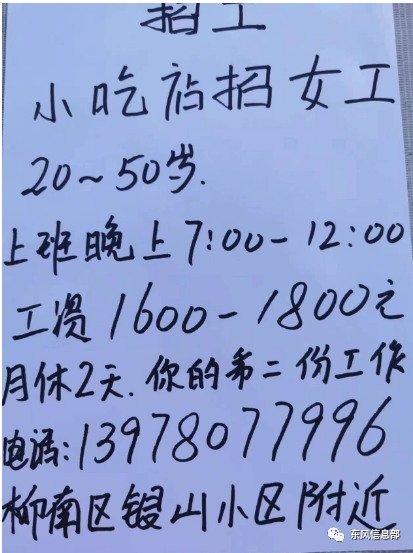 招工
小吃店招女工
20~50岁.
上班晚上7:00-12:00
工资1600-1800元
月休2天.你的第二份工作
电话:13978077996
柳南区银山小区附近
东风信息部